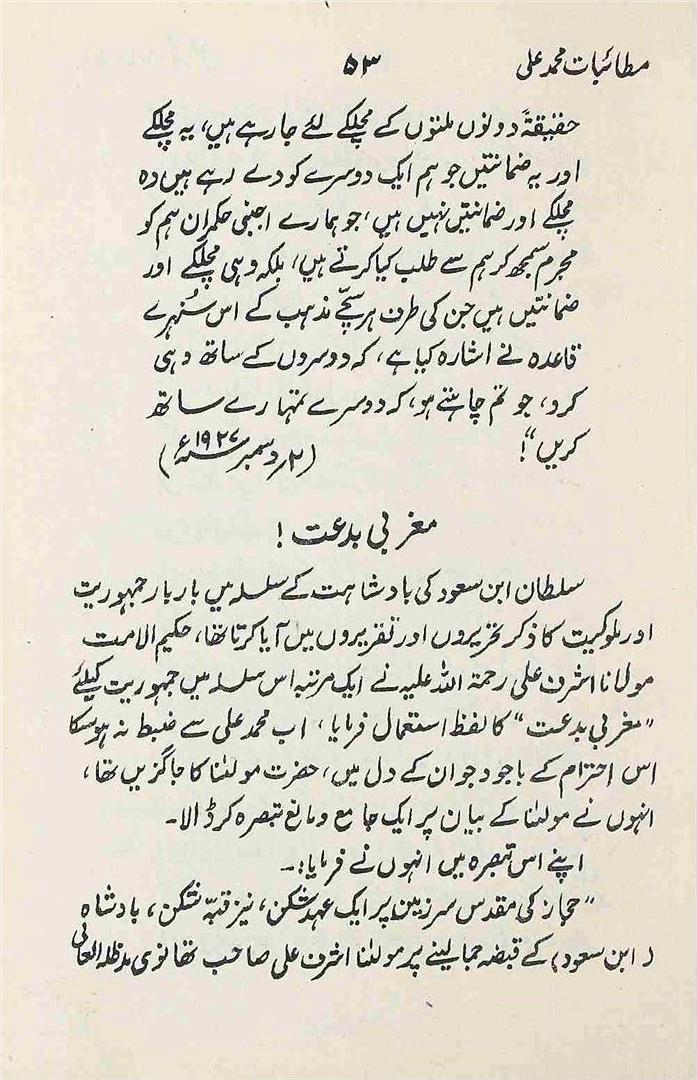 مطائبات محمد علی
۵۳
حقیقۃً دونوں ملتوں کے مچلکے لئے جا رہے ہیں، یہ مچلکے
اور یہ ضمانتیں جو ہم ایک دوسرے کو دے رہے ہیں وہ
مچلکے اور ضمانتیں نہیں ہیں، جو ہمارے اجنبی حکمران ہم کو
مجرم سمجھ کر ہم سے طلب کیا کرتے ہیں، بلکہ وہی مچلکے اور
ضمانتیں ہیں جن کی طرف ہر سچّے مذہب کے اس سُنہرے
قاعدہ نے اشارہ کیا ہے، کہ دوسروں کے ساتھ وہی
کرو، جو تم چاہتے ہو، کہ دوسرے تمہارے ساتھ
کریں"!
(۲/دسمبر سنہ ۱۹۲۷ء)
مغربی بدعت!
سلطان ابن سعود کی بادشاہت کے سلسلہ میں بار بار جمہوریت
اور ملوکیت کا ذکر تحریروں اور تقریروں میں آیا کرتا تھا، حکیم الامت
مولانا اشرف علی رحمۃ اللہ علیہ نے ایک مرتبہ اس سلسلہ میں جمہوریت کیلئے
"مغربی بدعت" کا لفظ استعمال فرمایا، اب محمد علی سے ضبط نہ ہو سکا
اس احترام کے باوجود جو ان کے دل میں، حضرت مولٰنا کا جاگزیں تھا،
انہوں نے مولٰنا کے بیان پر ایک جامع و مانع تبصرہ کر ڈالا۔
اپنے اس تبصرہ میں انہوں نے فرمایا:۔
"حجاز کی مقدس سرزمین پر ایک عہد شکن، نیز قبّہ شکن، بادشاہ
(ابن سعود) کے قبضہ جما لینے پر مولٰنا اشرف علی صاحب تھانوی مدظلہ العالی